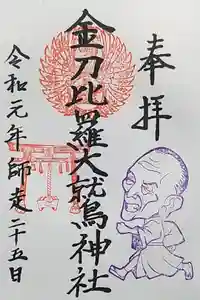 奉拝
金刀比羅大鷲神社
令和元年師走二十五日